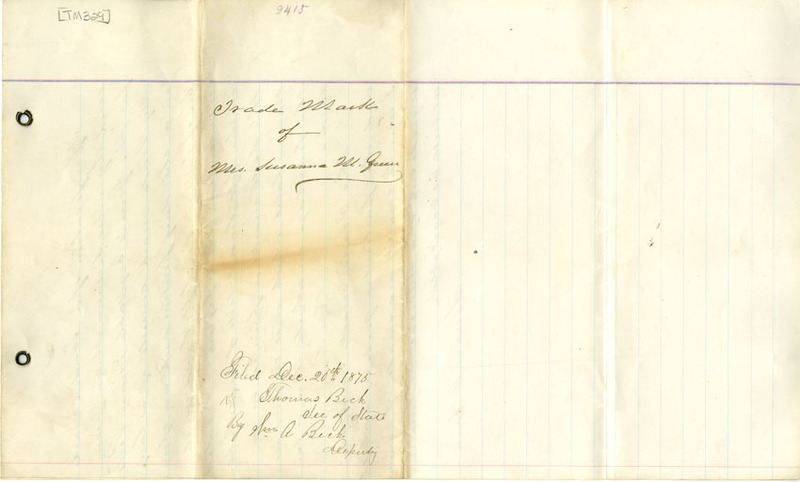 [TM329]
9415
Trade Mark
of
Mrs. Susanna M. Green
Filed Dec. 20th 1875
Thomas Beck
Sec of State
By Wm A Beck
Deputy